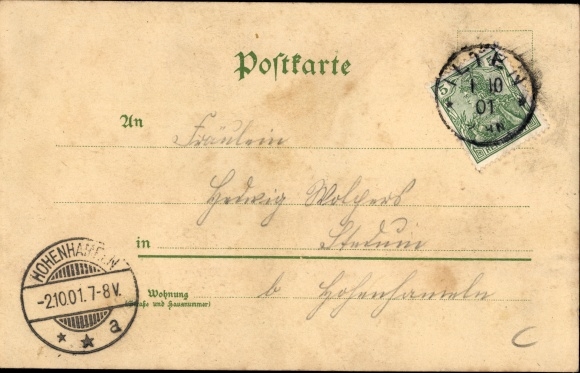 Postkarte
ILTEN
1 10
01
5
An
Fräulein
Hedwig Wolpers
in
Stedum
HOHENHAMELN
-2.10.01.7-8V.
a
Wohnung
(Straße und Hausnummer)
b Hohenhameln